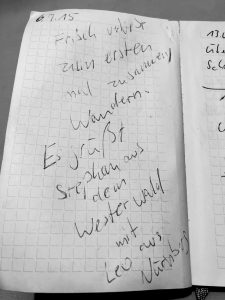 7.15
Frisch
zum ersten
mal zusammen
Wandern.
Es grüßt
Stephan aus
dem
Westerwald
mit
Leo aus
Nürnberg
13.
übe